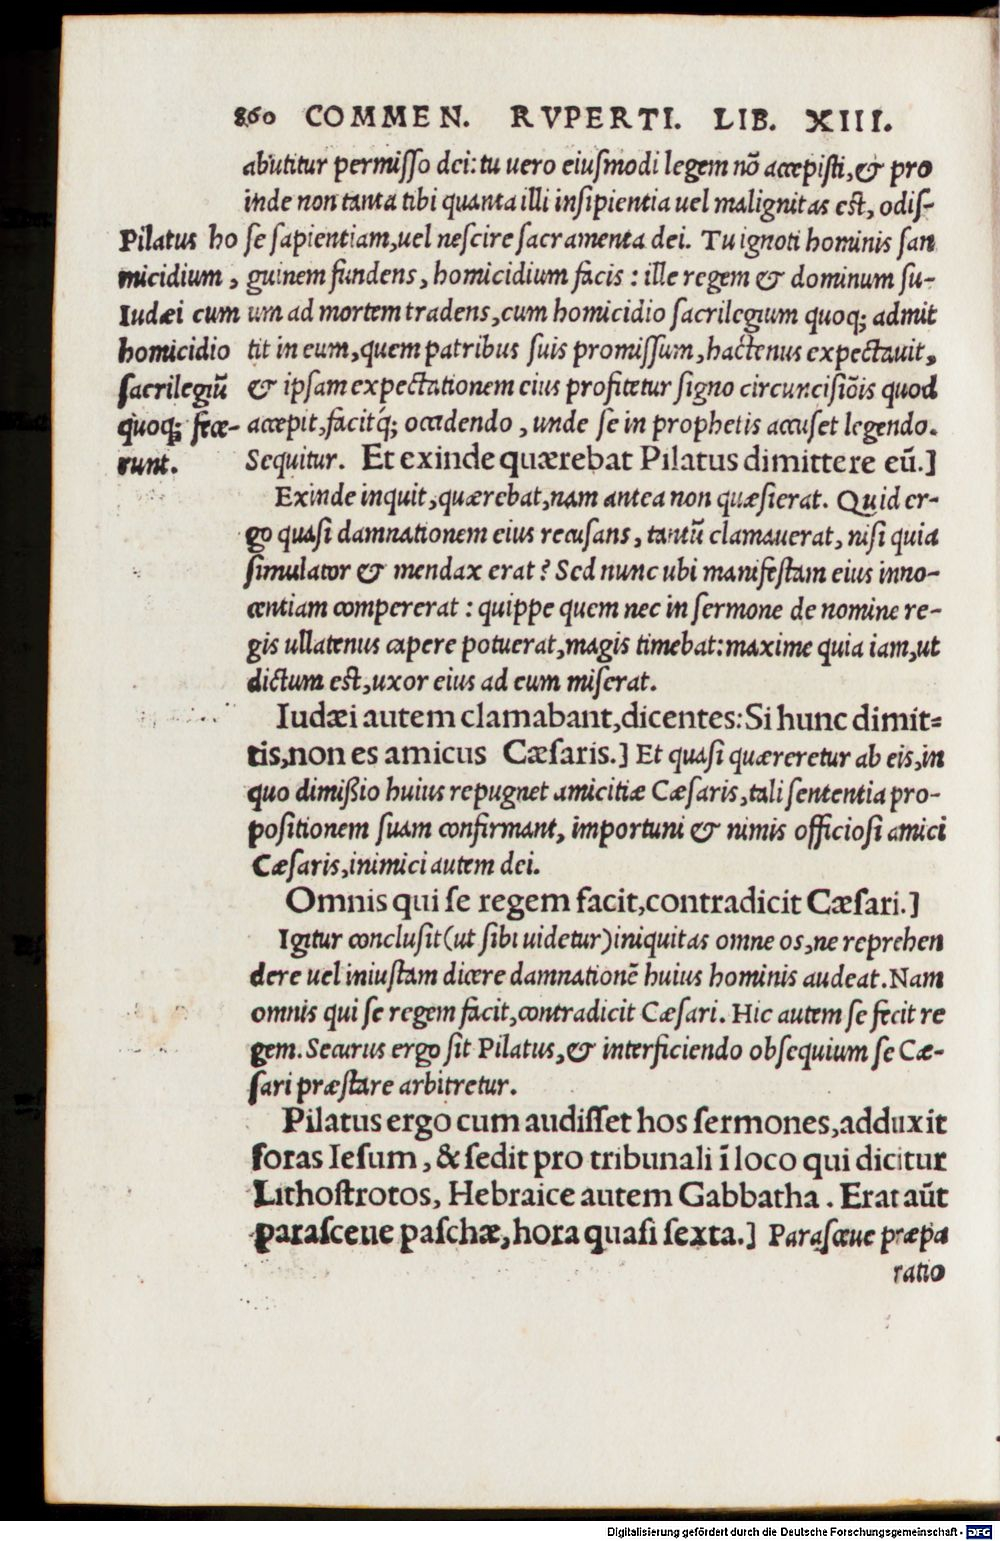 860 COMMEN. RVPERTI. LIB. XIII.
abutitur permiſſo dei: tu uero eiuſmodi legem nõ accepiſti, & pro
inde non tanta tibi quanta illi inſipientia uel malignitas eſt, odiſ-
ſe ſapientiam, uel neſcire ſacramenta dei. Tu ignoti hominis ſan
guinem fundens, homicidium facis: ille regem & dominum ſu-
um ad mortem tradens, cum homicidio ſacrilegium quoq; admit
tit in eum, quem patribus ſuis promiſſum, hactenus expectauit,
& ipſam expectationem eius profitetur ſigno circunciſiõis quod
accepit, facitq́; occidendo, unde ſe in prophetis accuſet legendo.
Pilatus ho
micidium,
Iudæi cum
homicidio
ſacrilegiũ
quoq; fece-
runt.
Sequitur. Et exinde quærebat Pilatus dimittere eũ.]
Exinde inquit, quærebat, nam antea non quæſierat. Quid er-
go quaſi damnationem eius recuſans, tantũ clamauerat, niſi quia
ſimulator & mendax erat? Sed nunc ubi manifeſtam eius inno-
centiam compererat: quippe quem nec in ſermone de nomine re-
gis ullatenus capere potuerat, magis timebat: maxime quia iam, ut
dictum eſt, uxor eius ad eum miſerat.
Iudæi autem clamabant, dicentes: Si hunc dimit-
tis, non es amicus Cæſaris.] Et quaſi quæreretur ab eis, in
quo dimißio huius repugnet amicitiæ Cæſaris, tali ſententia pro-
poſitionem ſuam confirmant, importuni & nimis officioſi amici
Cæſaris, inimici autem dei.
Omnis qui ſe regem facit, contradicit Cæſari.]
Igitur concluſit (ut ſibi uidetur) iniquitas omne os, ne reprehen
dere uel iniuſtam dicere damnationẽ huius hominis audeat. Nam
omnis qui ſe regem facit, contradicit Cæſari. Hic autem ſe fecit re
gem. Securus ergo ſit Pilatus, & interficiendo obſequium ſe Cæ-
ſari præſtare arbitretur.
Pilatus ergo cum audiſſet hos ſermones, adduxit
foras Ieſum, & ſedit pro tribunali ĩ loco qui dicitur
Lithoſtrotos, Hebraice autem Gabbatha. Erat aũt
paraſceue paſchæ, hora quaſi ſexta.] Paraſceue præpa
ratio
Digitalisierung gefördert durch die Deutsche Forschungsgemeinschaft - DFG